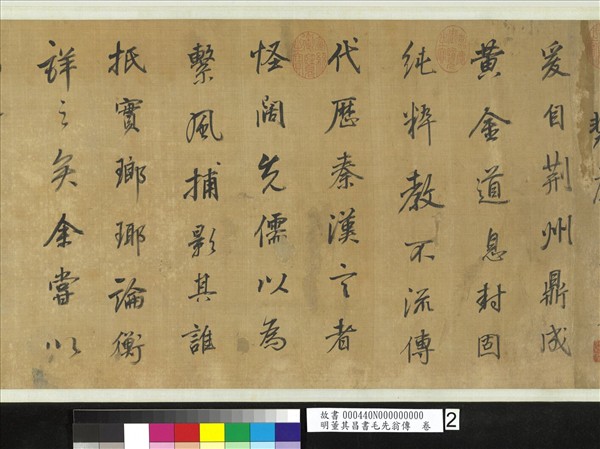 爰自荆州鼎成
黄金道息封固
純粹教不流傳
代歷秦漢言者
怪闊先儒以為
繫風捕影其誰
抵實瑯琊論衡
詳之矣余嘗以
故書000440N000000000
明董其昌書毛先翁傳 卷
2